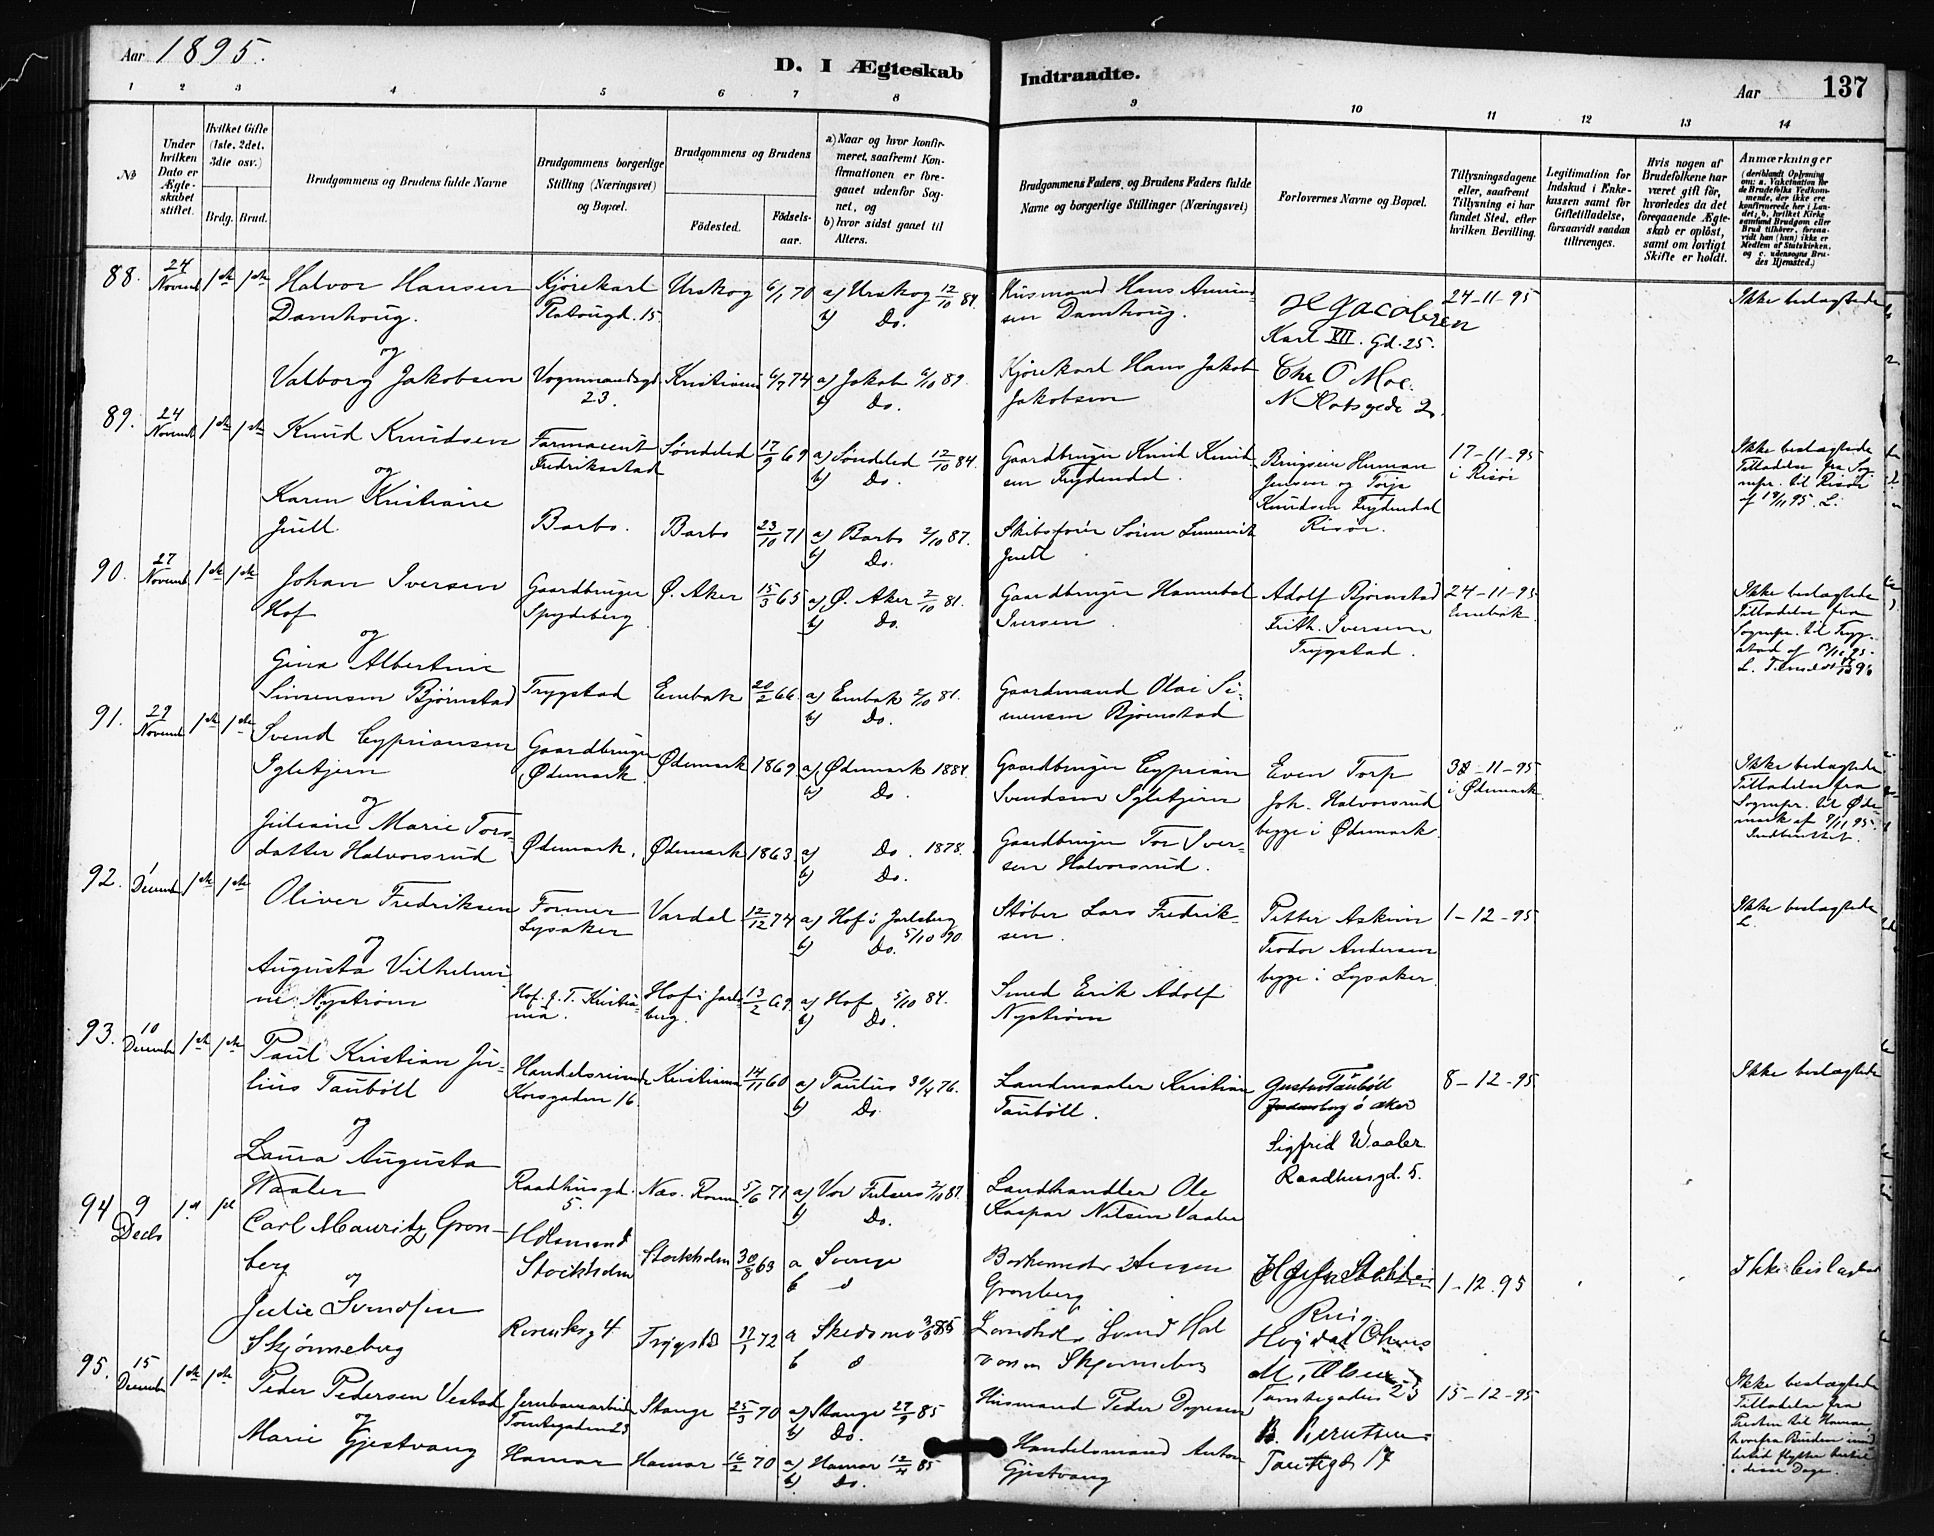 Aar 1895.
D. I Ægteskab Indtraadte.
Aar 137
1 2 3 4 5 6 7 8 9 10 11 12 13 14
No
Under hvilken Dato er Ægteskabet stiftet.
Hvilket Gifte (1ste, 2det, 3die osv.)
Brdg. Brud.
Brudgommens og Brudens fulde Navne
Brudgommens borgerlige Stilling (Næringsvei) og Bopæl.
Brudgommens og Brudens
Fødested.
Fødselsaar.
a) Naar og hvor konfirmeret, saafremt Konfirmationen er foregaaet udenfor Sognet, og
b) hvor sidst gaaet til Alters.
Brudgommens Faders og Brudens Faders fulde Navne og borgerlige Stillinger (Næringsvei)
Forlovernes Navne og Bopæl.
Tillysningsdagene eller, saafremt Tillysning ei har fundet Sted, efter hvilken Bevilling.
Legitimation for Indskud i Enkekassen samt for Giftetilladelse, forsaavidt saadan tiltrænges.
Hvis nogen af Brudefolkene har været gift før, hvorledes da det foregaaende Ægteskab er opløst, samt om lovligt Skifte er holdt.
Anmærkninger
(deriblandt Oplysning om: a. Vakcination for de Brudefolks Vedkommende, der ikke ere konfirmerede her i Landet; b. hvilket Kirkesamfund Brudgom eller Brud tilhører, forsaavidt han (hun) ikke er Medlem af Statskirken, og c. udensogns Brudes Hjemsted.)
88. 24 Novemb 1ste 1ste Halvor Hansen Damhoug. Kjørekarl Platougd. 15 Urskog 6/1 70 a) Urskog 12/10 84. b) Do. Husmand Hans Amundsen Damhoug. H Jacobsen Karl XII. Gd. 25. 24-11-95 Ikke beslægtede
og
Valborg Jakobsen Vognmandsgd. 23. Kristiania 6/7 74 a) Jakob 6/10 89. b) Do. Kjørekarl Hans Jakob Jakobsen Chr O Moe. N Slotsgade 2.
89. 24 Novemb 1ste 1ste Knud Knudsen Farmaceut Fredrikstad Søndeled 17/9 69 a) Søndeled 12/10 84. b) Do. Gaardbruger Knud Knudsen Frydendal. Herman Jensen og Terje Knudsen Frydendal Risør. 17-11-95 i Risør Ikke beslægtede Tilladelse fra Sognepr. til Risør
og
Karen Kristiane Juell Barbo. Barbo 23/10 71 a) Barbo 2/10 87. b) Do. Skibsfører Søren Juell
90. 27 Novemb 1ste 1ste Johan Iversen Hof Gaardbruger Spydeberg Ø. Aker 15/3 65 a) Ø. Aker 2/10 81. b) Do. Gaardbruger Hannibal Iversen. Adolf Bjørnstad Frith. Iversen Trygstad. 24-11-95 Enebak Ikke beslægtede Tilladelse fra Sognepr. til Trygstad
og
Gina Albertine Simensen Bjørnstad Trygstad Enebak 20/2 66 a) Enebak 2/10 81. b) Do. Gaardmand Olai Simensen Bjørnstad
91. 29 Novemb 1ste 1ste Svend Cypriansen Igletjern Gaardbruger Ødemark Ødemark 1869 a) Ødemark 1884. b) Do. Gaardbruger Cyprian Svendsen Igletjern Even Torp Joh. Halvorsrud begge i Ødemark. -11-95 i Ødemark Ikke beslægtede Tilladelse fra Sognepr. til Ødemark af 8/11 95.
og
Juliane Marie Torsdatter Halvorsrud Ødemark. Ødemark 1863 a) Do. 1878. b) Do. Gaardbruger Tor Iversen Halvorsrud.
92. 1 Decemb 1ste 1ste Oliver Fredriksen Former Lysaker Vardal 12/12 74 a) Hof i Jarlsberg 5/10 90 b) Do. Støber Lars Fredriksen. Petter Askim Teodor Andersen begge i Lysaker. 1-12-95 Ikke beslægtede L.
og
Augusta Vilhelmine Nystrøm Hof. J. T. Kristiania. Hof i Jarlsberg. 13/2 69 a) Hof 5/10 84. b) Do. Smed Erik Adolf Nystrøm
93. 10 Decembr 1ste 1ste Paul Kristian Julius Taubøll Handelsreisende Korsgaden 16. Kristiania 14/11 60 a) Paulus 30/4 76. b) Do. Landmaaler Kristian Taubøll. Gustav Taubøll i Aker Sigfrid Waaler Raadhusgd. 5. 8-12-95 Ikke beslægtede
og
Laura Augusta Waaler Raadhusgd. 5. Nes. Rom. 5/6 71 a) Vor Frelsers 2/10 87. b) Do. Landhandler Ole Kaspar Nilsen Vaaler
94 9 Decb 1st 1st Carl Mauritz Gronberg Stockholm Stockholm 30/8 63 a Sverige b d Gronberg 1-12.95 Ikke beslægtet
og
Julie Svendsen Skjønneberg 4 Trygstad 72 a Skedsmo 85 b d Svend Halvorsen Skjønneberg
95. 15 Decembr 1ste 1ste Peder Pedersen Vestad Jernbanearbeider Tomtegaden 23 Stange 25/3 70 a) Stange 27/9 85 b) Do. Husmand Peder M. Olsen Tomtegaden 23 15-12-95 Ikke beslægtede Tilladelse fra Presten til Hamar, hvorfra Bruden i disse Dage.
og
Marie Gjestvang Hamar Hamar 16/2 70 a) Hamar 12/4 85 b) Do. Handelsmand Anton Gjestvang B. Berntsen Tomtegd 17